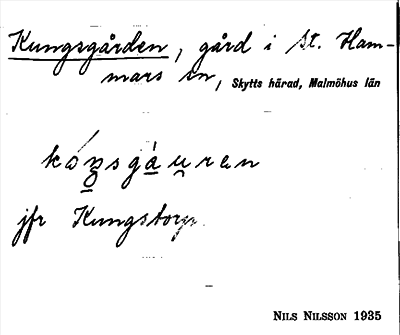 Kungsgården, gård i St. Ham-
mars sn, Skytts härad, Malmöhus län
kóŋsgau̯ran
jfr Kungstorp.
NILS NILSSON 1935